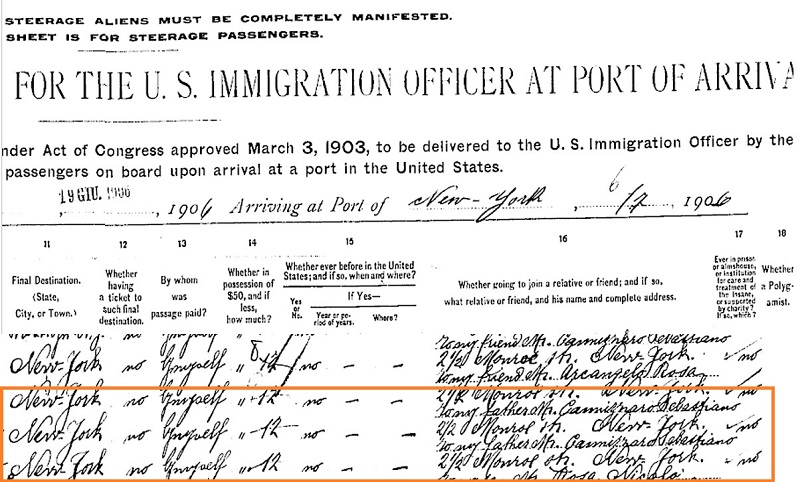 STEERAGE ALIENS MUST BE COMPLETELY MANIFESTED.
SHEET IS FOR STEERAGE PASSENGERS.
FOR THE U. S. IMMIGRATION OFFICER AT PORT OF ARRIVA
nder Act of Congress approved March 3, 1903, to be delivered to the U. S. Immigration Officer by the
passengers on board upon arrival at a port in the United States.
19 GIU. 1906, 1906 Arriving at Port of New-York, 6/2, 1906
11 12 13 14 15 16 17 18
Final Destination.
(State,
City, or Town.)
Whether
having
a ticket to
such final
destination.
By whom
was
passage paid?
Whether in
possession of
$50, and if
less,
how much?
Whether ever before in the United
States; and if so, when and where?
Yes
or
No.
If Yes—
Year or pe-
riod of years.
Where?
Whether going to join a relative or friend; and if so,
what relative or friend, and his name and complete address.
Ever in prison
or almshouse,
or institution
for care and
treatment of
the insane,
or supported
by charity?
If so, which?
Whether
a Polyg-
amist.
to my friend Mr. Cannizzaro Sebastiano
New-York no by myself " 12 no — — 2/2 Monroe st. New York. no
to my friend Mr. Arcangelo Rosa
New-York no by myself " 12 no — — 2/2 Monroe st. New York. no
to my father Mr. Cannizzaro Sebastiano
New-York no by myself " 12 no — — 2/2 Monroe st. New York. no
to my father Mr. Cannizzaro Sebastiano
New-York no by myself " 12 no — — 2/2 Monroe st. New York. no
Rosa Nicolo